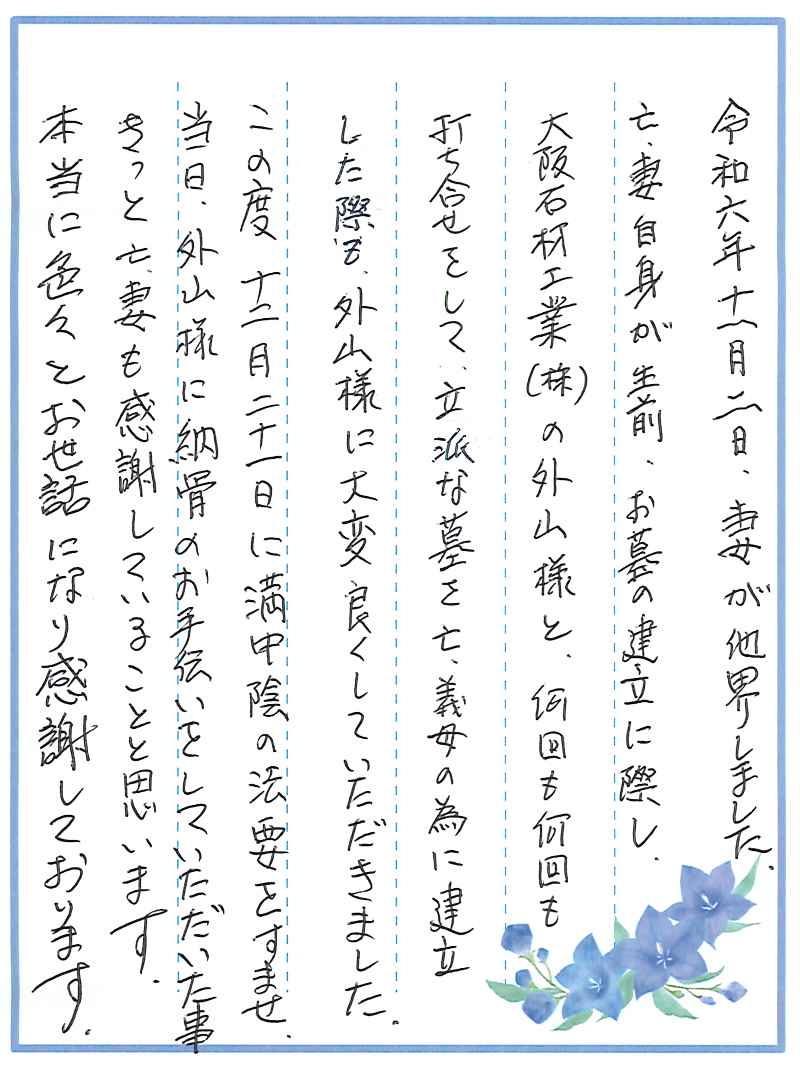 令和六年十一月二日、妻が他界しました。
亡、妻自身が生前、お墓の建立に際し、
大阪石材工業(株)の外山様と、何回も何回も
打ち合せをして、立派な墓を亡、義母の為に建立
した際も、外山様に大変良くしていただきました。
この度 十二月二十一日に満中陰の法要をすませ、
当日、外山様に納骨のお手伝いをしていただいた事
きっと亡、妻も感謝していることと思います。
本当に色々とお世話になり感謝しております。